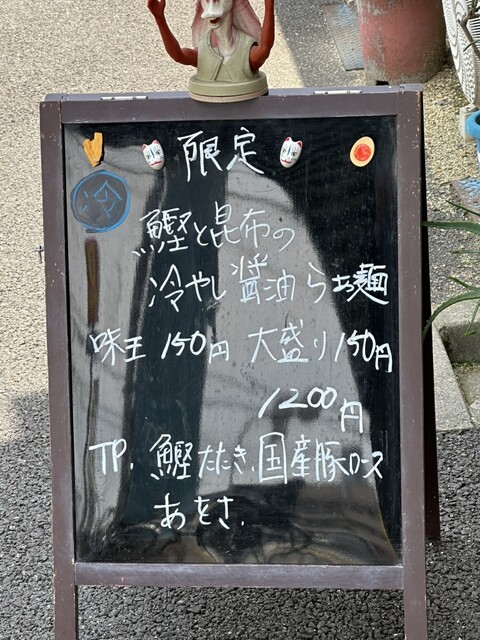 限定
冷
鰹と昆布の
冷やし醤油らぁ麺
味玉 150円 大盛り150円
1200円
TP. 鰹たたき.国産豚ロース
あをさ.